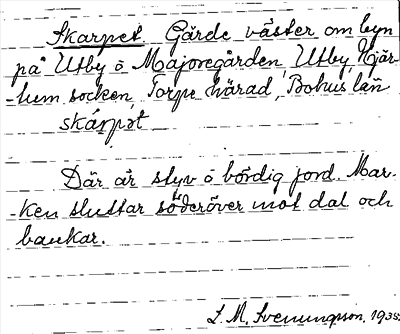 Skarpet. Gärde väster om byn
på Utby ö Majoregården, Utby, Hjär-
-tum socken, Torpe härad, Bohus län
skárpət
Där är styv o bördig jord. Mar-
-ken sluttar söderöver mot dal och
backar.
L. M. Svenungsson, 1935.